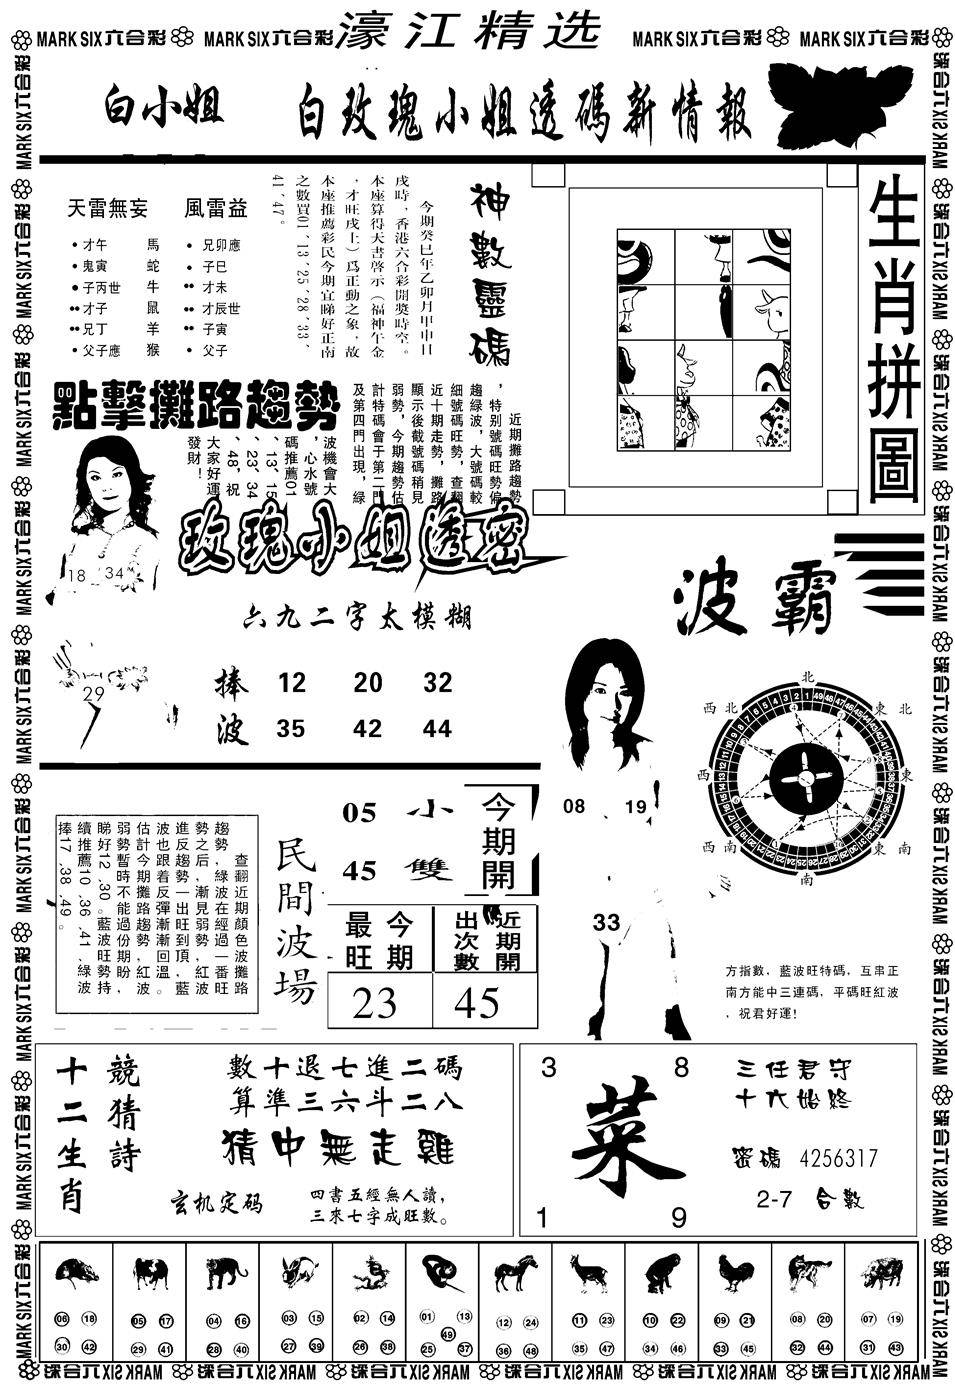 MARK SIX六合彩 MARK SIX六合彩 濠江精选 MARK SIX六合彩 MARK SIX六合彩
白小姐 白玫瑰小姐透碼新情報
天雷無妄 風雷益
才午 馬 兄卯應
鬼寅 蛇 子巳
子丙世 牛 才未
才子 鼠 才辰世
兄丁 羊 子寅
父子應 猴 父子
神數靈碼
今期癸巳年乙卯月甲申日
戌時，香港六合彩開獎時空。
本座算得天書啓示（福神午金
，才旺戌上）爲正動之象，故
本座推薦彩民今期宜睇好正南
之數買01、13、25、28、33、
41、47。
生肖拼圖
點擊攤路趨勢
近期攤路趨勢
，特别號碼旺勢偏
趨綠波，大號碼較
細號碼旺勢，查翻
近十期走勢，攤路
顯示後截號碼稍見
弱勢，今期趨勢估
計特碼會于第二門
及第四門出現，綠
波機會大
，心水號
碼推薦01
、13、15
、23、34
、48，祝
大家好運
發財！
18 34
29
玫瑰小姐透密
六九二字太模糊
捧 12 20 32
波 35 42 44
波霸
北
西北 東北
西 東
西南 東南
南
08 19
33
方指數，藍波旺特碼，互串正
南方能中三連碼，平碼旺紅波
，祝君好運!
查翻近期顏色波攤路
趨勢，綠波在經過一番旺
勢之后，漸見弱勢，紅波
進反趨勢一出旺到頂，藍
波也跟着反彈漸漸回溫。
估計今期攤路趨勢紅波
弱勢暫時不能過份期盼，
睇好12、30。藍波旺勢持
續推薦10、36、41、綠波
捧17、38、49。
民間波場
05 小
45 雙
今期開
今期最旺 近期開出次數
23 45
競猜詩
十二生肖
數十退七進二碼
算準三六斗二八
猜中無走雞
玄机定码
四書五經無人讀，
三來七字成旺數。
3 8
菜
1 9
三任君守
十六始終
密碼 4256317
2-7 合數
06 18 05 17 04 16 03 15 02 14 01 13 12 24 11 23 10 22 09 21 08 20 07 19
49
30 42 29 41 28 40 27 39 26 38 25 37 36 48 35 47 34 46 33 45 32 44 31 43
MARK SIX六合彩 MARK SIX六合彩 MARK SIX六合彩 MARK SIX六合彩 MARK SIX六合彩 MARK SIX六合彩